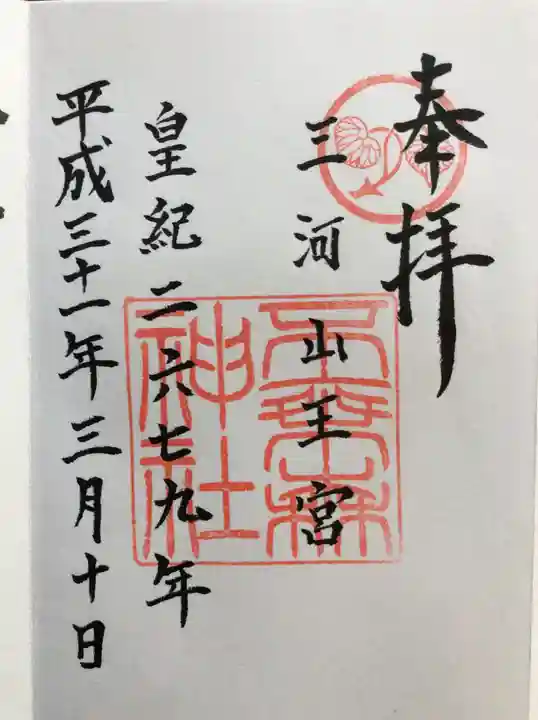 奉拝
三河
山王宮
皇紀二六七九年
平成三十一年三月十日
神社